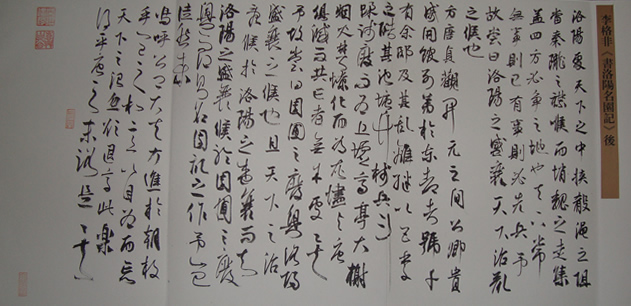 李格非《書洛陽名園記》後
洛陽處天下之中挾殽澠之阻
當秦隴之襟喉而趙魏之走集
蓋四方必爭之地也天下常
無事則已有事則必先兵予
故嘗曰洛陽之盛衰天下治亂
之候也
方唐貞觀開元之間公卿貴
戚開館列第於東都者號千
有餘邸及其亂離繼以五季
之酷其池塘竹樹兵車
蹂蹴廢而為丘墟高亭大榭
煙火焚燎化而為灰燼與唐
俱滅而共亡者無餘處矣
予故嘗曰園圃之廢興洛陽
盛衰之候也且天下之治
亂候於洛陽之盛衰而知
洛陽之盛衰候於園圃之廢
興而得則名園記之作予豈
徒然哉
嗚呼公卿大夫方進於朝放
乎一己之私以自為而忘
天下之治忽欲退享此樂
得乎唐之末路是矣